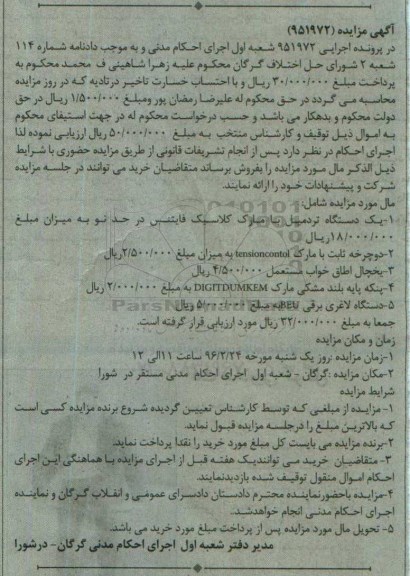 آگهی مزایده (951972)
در پرونده اجرایی 951972 شعبه اول اجرای احکام مدنی و به موجب دادنامه شماره 114
شعبه 2 شورای حل اختلاف گرگان محکوم علیه زهرا شاهینی ف محمد محکوم به
پرداخت مبلغ 30/000/000 ریال و با احتساب خسارت تاخیر در تادیه که در روز مزایده
محاسبه می گردد در حق محکوم له علیرضا رمضان پور ومبلغ 1/500/000 ریال در حق
دولت محکوم و بدهکار می باشد و حسب درخواست محکوم له در جهت استیفای محکوم
به اموال ذیل توقیف و کارشناس منتخب به مبلغ 50/000/000 ریال ارزیابی نموده لذا
اجرای احکام در نظر دارد پس از انجام تشریفات قانونی از طریق مزایده حضوری با شرایط
ذیل الذکر مال مورد مزایده را بفروش برساند متقاضیان خرید می توانند در جلسه مزایده
شرکت و پیشنهادات خود را ارائه نمایند.
مال مورد مزایده شامل:
1-یک دستگاه تردمیل با مارک کلاسیک فایتنس در حد نو به میزان مبلغ
18/000/000ریال
2-دوچرخه ثابت با مارک tensioncontol به میزان مبلغ 2/500/000ریال
3-یخچال اطاق خواب مستعمل 4/500/000 ریال
4-پنکه پایه بلند مشکی مارک DIGITDUMKEM به مبلغ 2/000/000 ریال
5-دستگاه لاغری برقی REU به مبلغ 5/000/000 ریال
جمعا به مبلغ 32/000/000 ریال مورد ارزیابی قرار گرفته است.
زمان و مکان مزایده
1-زمان مزایده :روز یک شنبه مورخه 96/3/24 ساعت 11الی 13
2-مکان مزایده :گرگان - شعبه اول اجرای احکام مدنی مستقر در شورا
شرایط مزایده
1- مزایده از مبلغی که توسط کارشناس تعیین گردیده شروع برنده مزایده کسی است
که بالاترین مبلغ را درجلسه مزایده قبول نماید.
2-برنده مزایده می بایست کل مبلغ مورد خرید را نقدا پرداخت نماید.
3- متقاضیان خرید می توانندیک هفته قبل از اجرای مزایده با هماهنگی این اجرای
احکام اموال منقول توقیف شده بازدیدنمایند.
4-مزایده باحضورنماینده محترم دادستان دادسرای عمومی و انقلاب گرگان و نماینده
اجرای احکام مدنی انجام خواهدشد.
5- تحویل مال مورد مزایده پس از پرداخت مبلغ مورد خرید می باشد.
مدیر دفتر شعبه اول اجرای احکام مدنی گرگان- درشورا